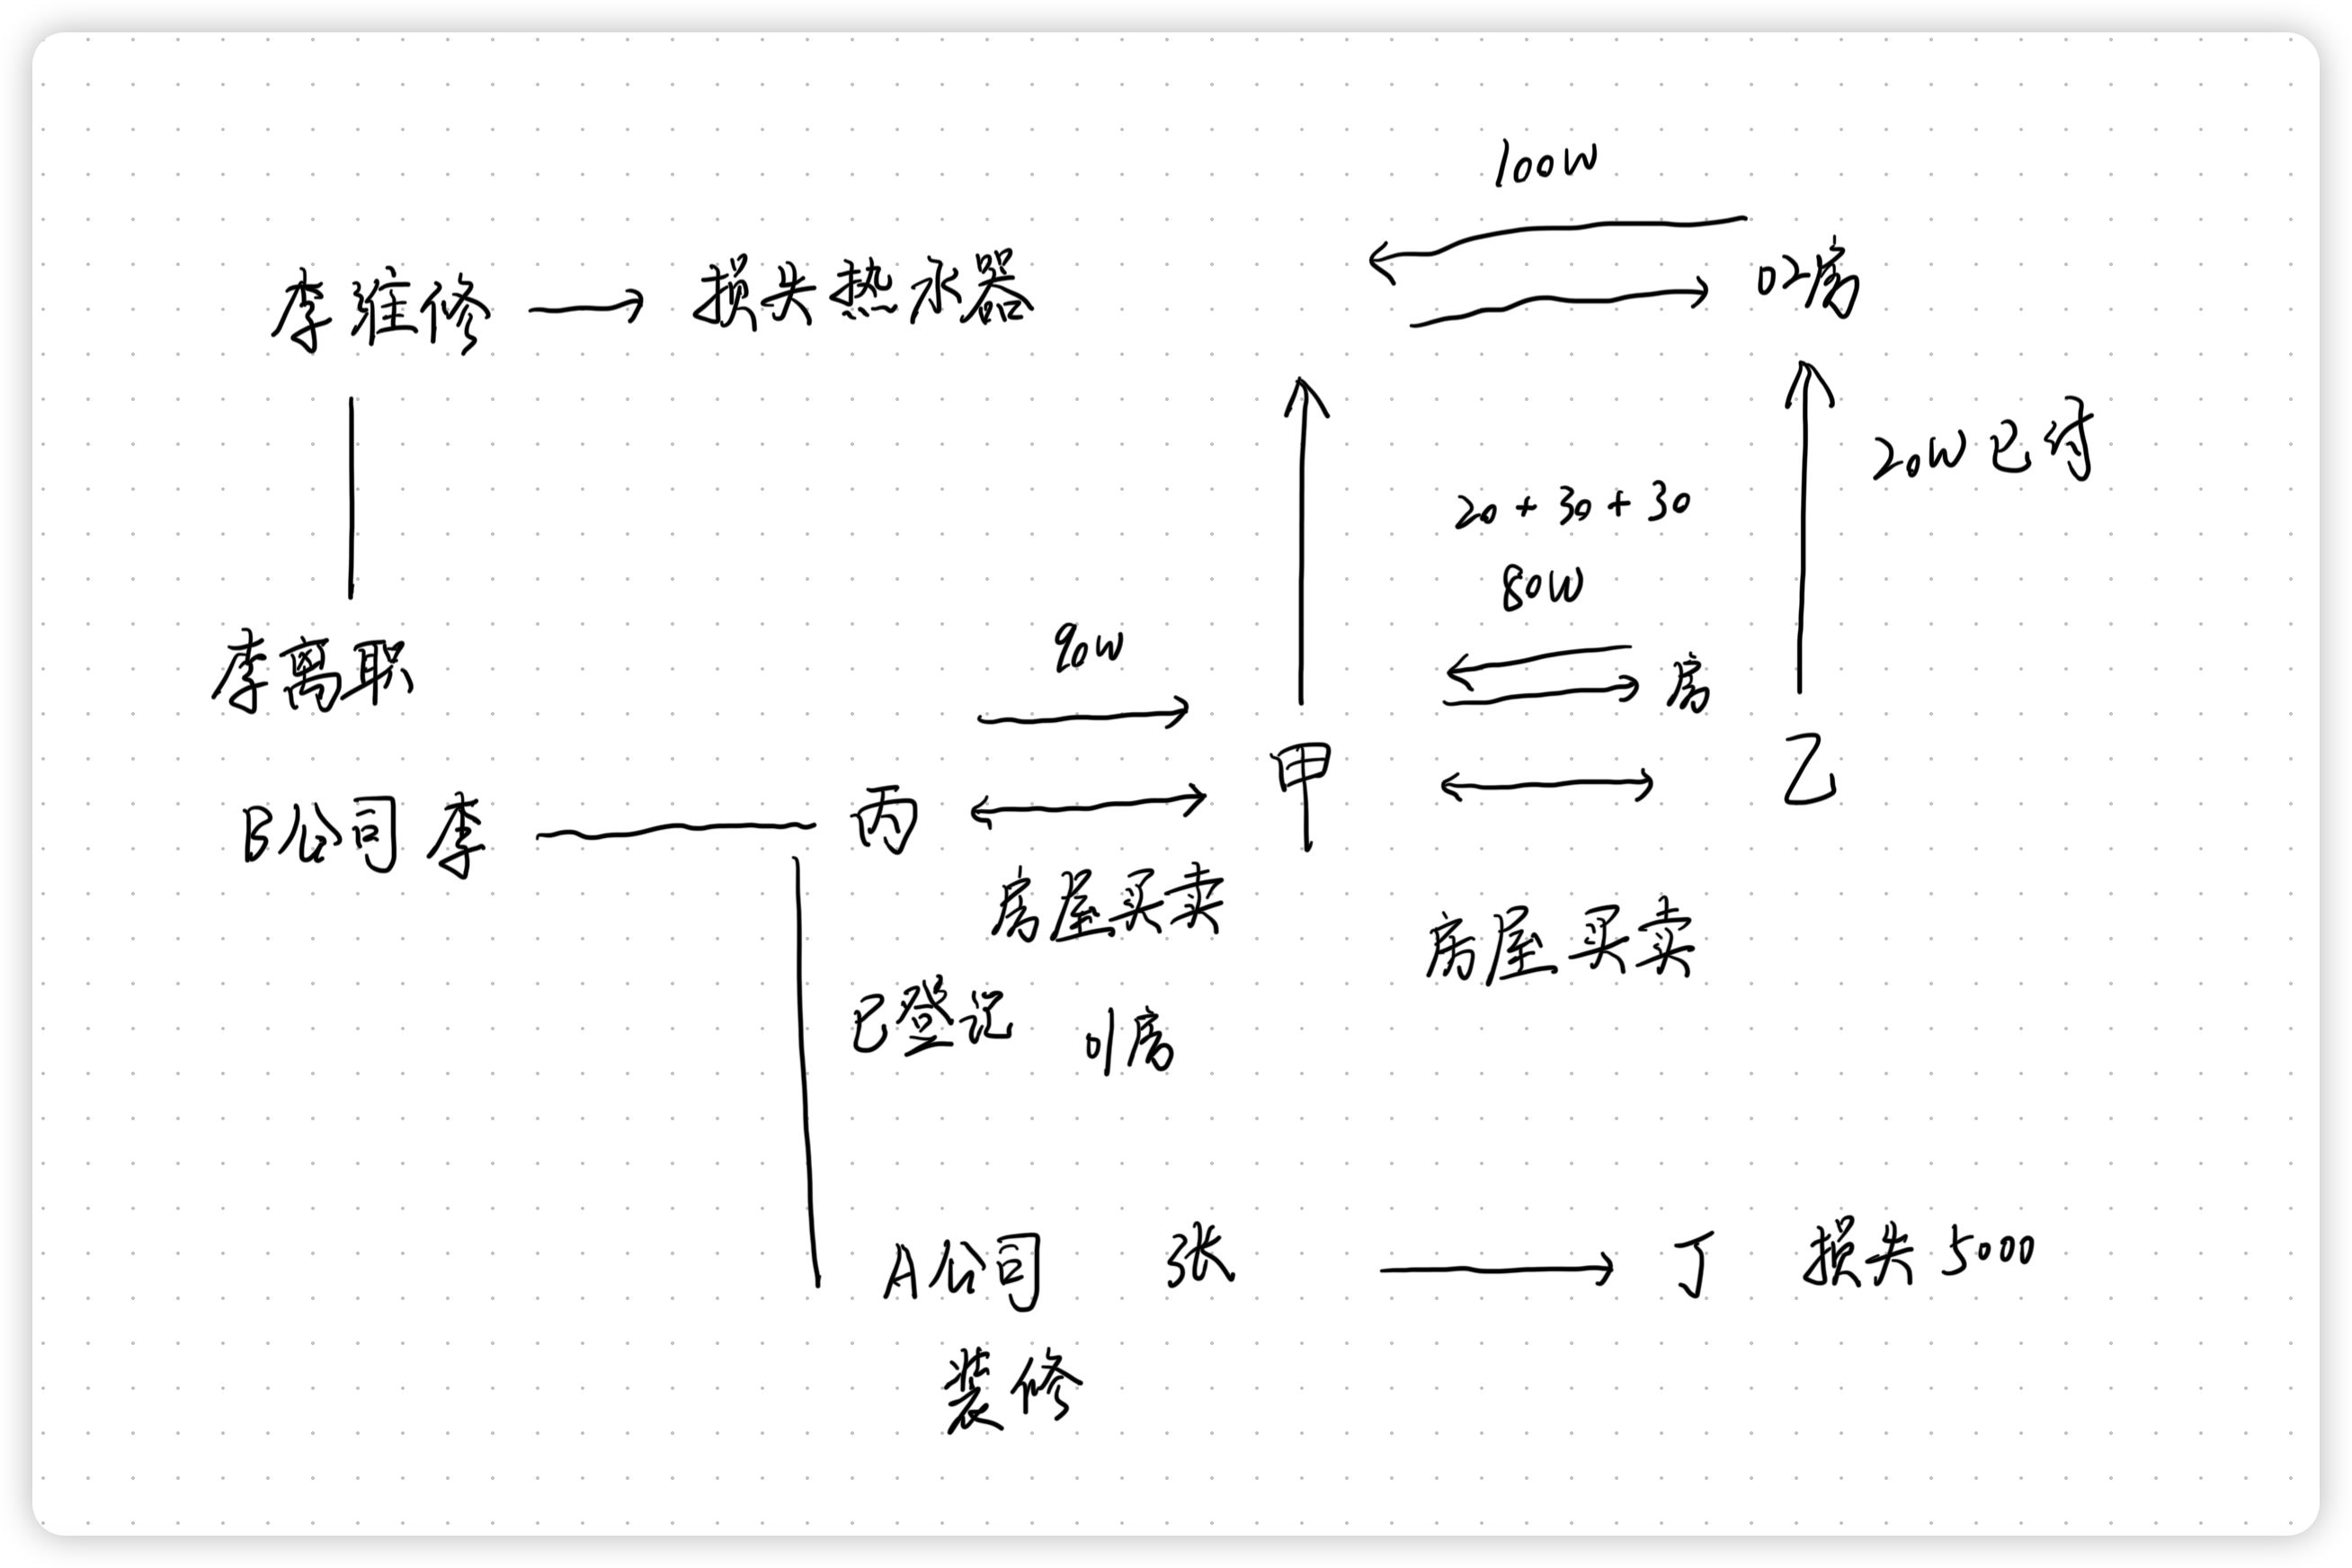 100W
李维修
损失热水器
02房
20W已付
20+30+30
80W
李离职
90W
房
甲
乙
B公司 李
丙
房屋买卖
房屋买卖
已登记
01房
A公司 张
丁 损失5000
装修